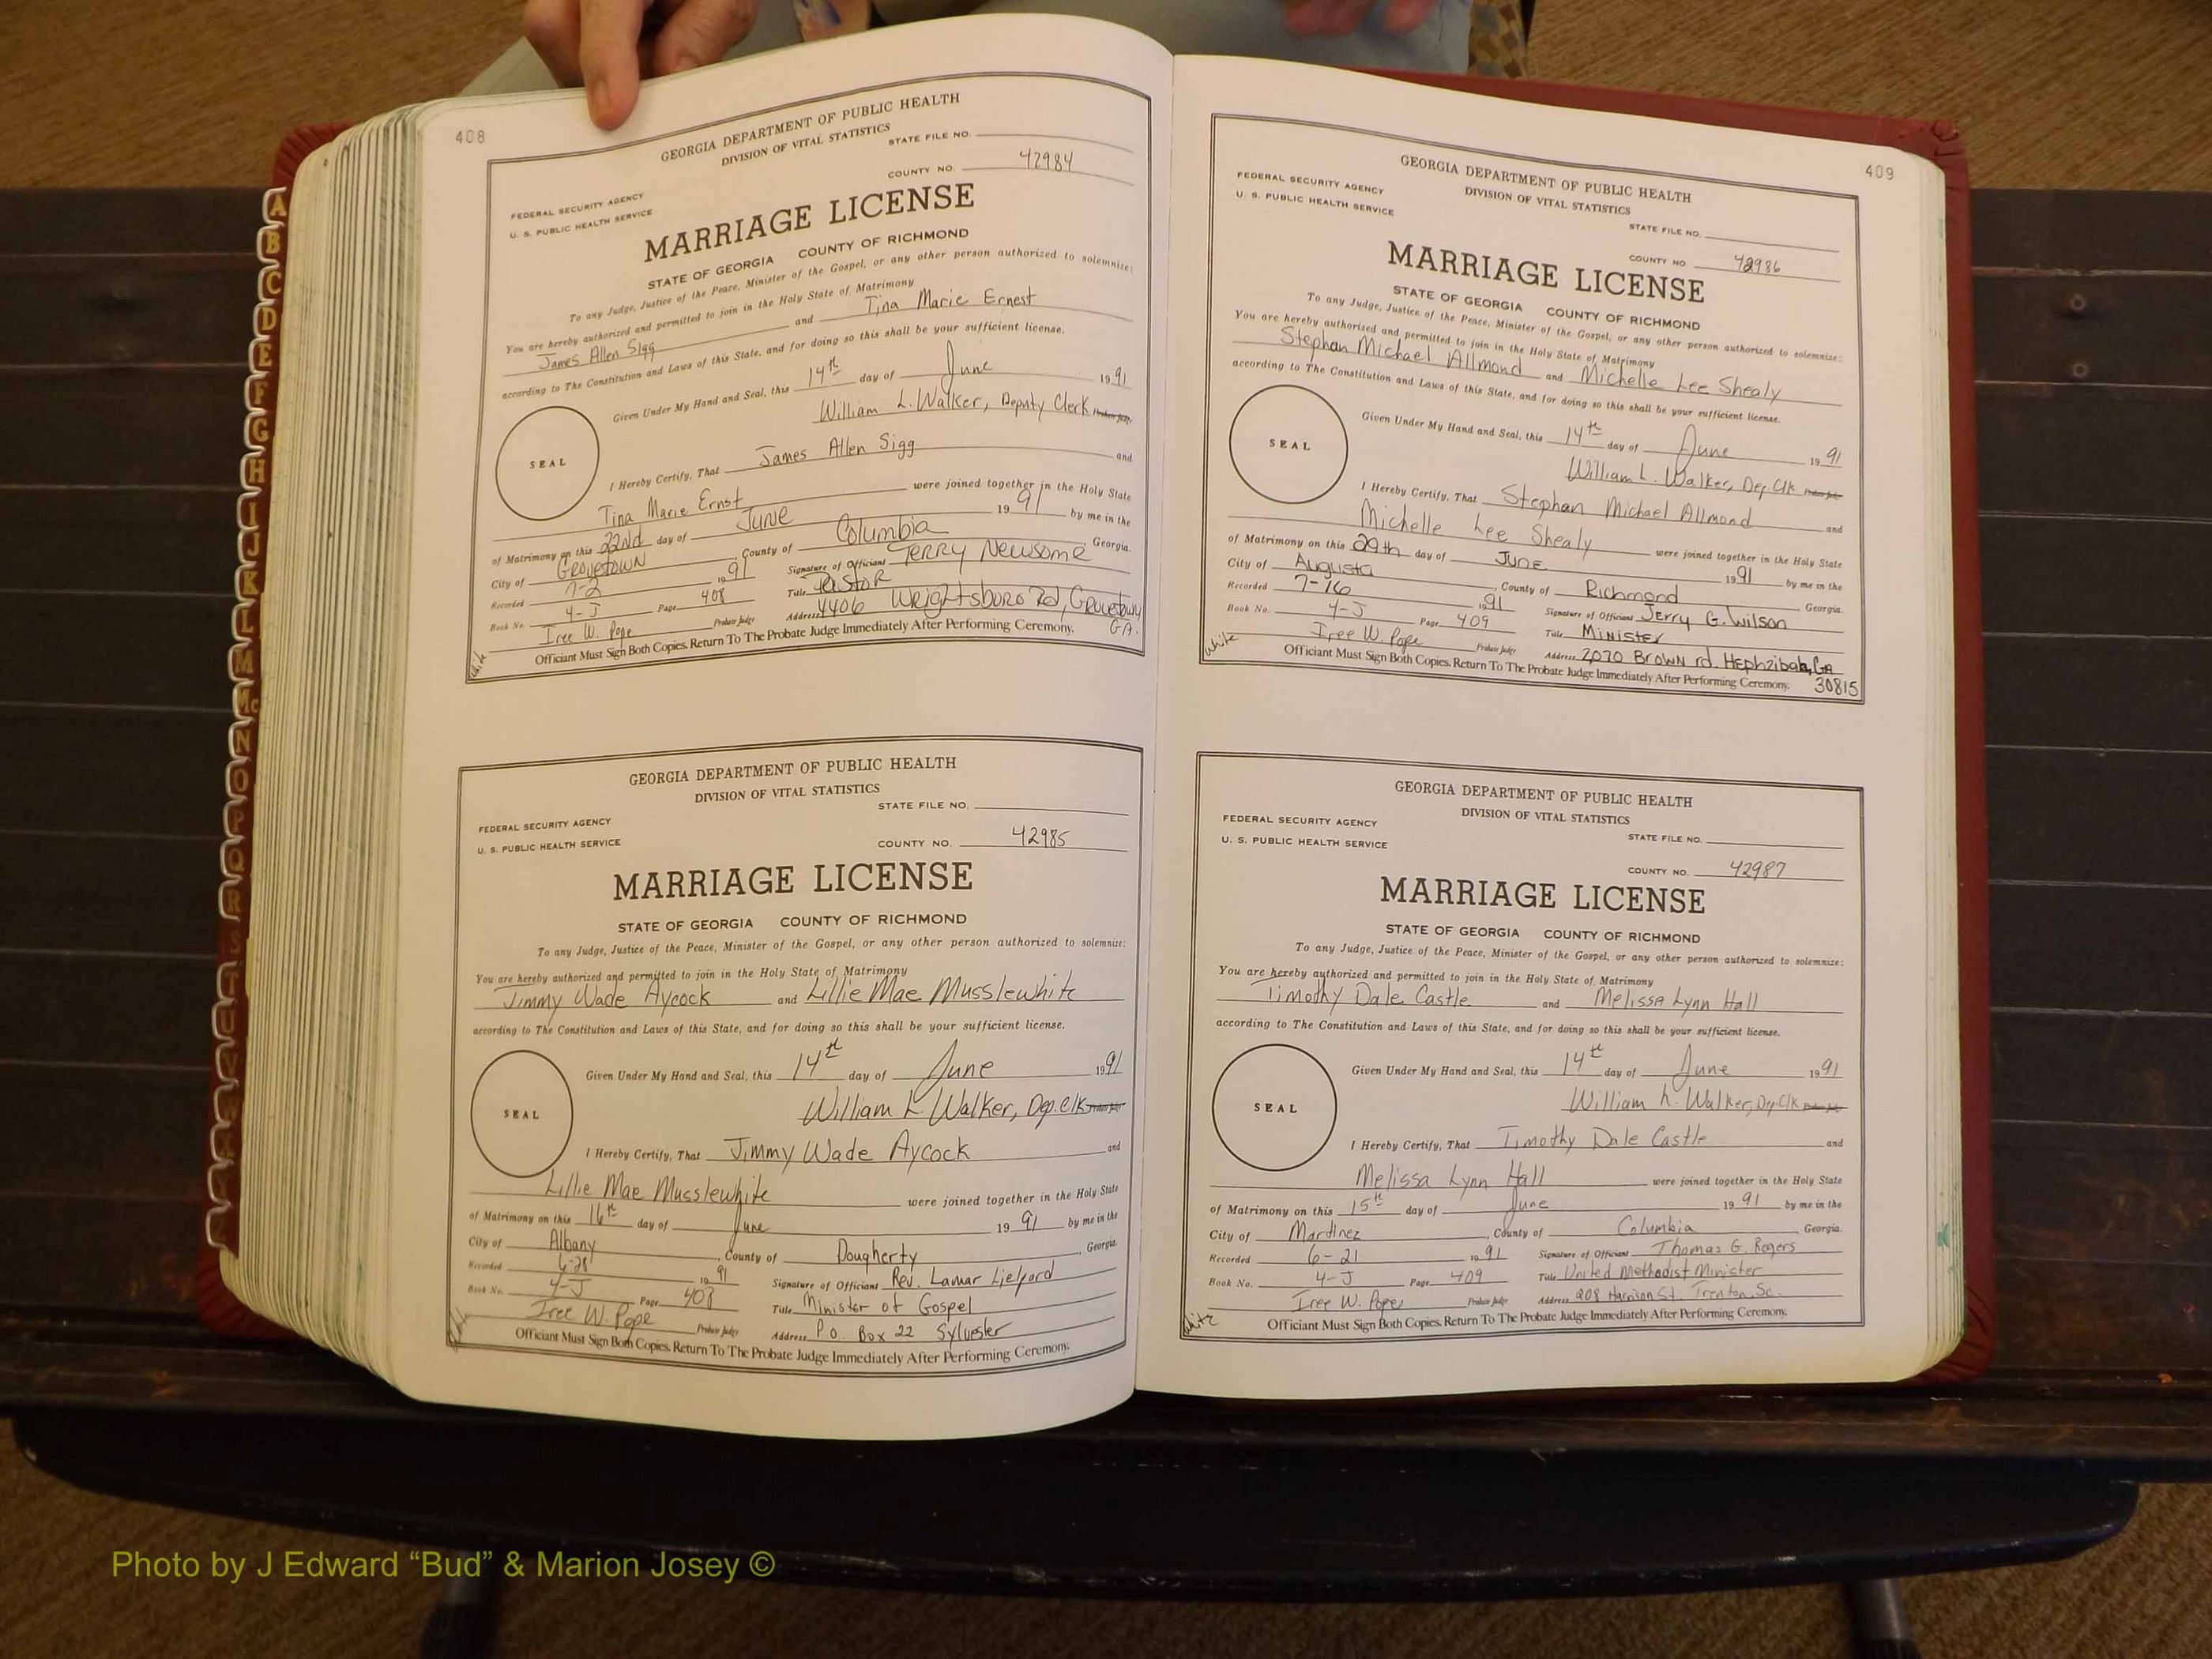 408
GEORGIA DEPARTMENT OF PUBLIC HEALTH
DIVISION OF VITAL STATISTICS
STATE FILE NO.
COUNTY NO. 42984
FEDERAL SECURITY AGENCY
U. S. PUBLIC HEALTH SERVICE
MARRIAGE LICENSE
STATE OF GEORGIA COUNTY OF RICHMOND
To any Judge, Justice of the Peace, Minister of the Gospel, or any other person authorized to solemnize:
You are hereby authorized and permitted to join in the Holy State of Matrimony
James Allen Sigg and Tina Marie Ernest
according to The Constitution and Laws of this State, and for doing so this shall be your sufficient license.
Given Under My Hand and Seal, this 14th day of June 1991
William L. Walker, Deputy Clerk
SEAL
I Hereby Certify, That James Allen Sigg and
Tina Marie Ernst were joined together in the Holy State
of Matrimony on this 22nd day of June 1991 by me in the
City of Grovetown, County of Columbia, Georgia.
Recorded 7-2 1991 Signature of Officiant Terry Newsome
Book No. 4-J Page 408 Title Pastor
Iree W. Pope Probate Judge Address 4406 Wrightsboro Rd, Grovetown GA.
Officiant Must Sign Both Copies. Return To The Probate Judge Immediately After Performing Ceremony.
White
GEORGIA DEPARTMENT OF PUBLIC HEALTH
DIVISION OF VITAL STATISTICS
STATE FILE NO.
FEDERAL SECURITY AGENCY
U. S. PUBLIC HEALTH SERVICE
COUNTY NO. 42985
MARRIAGE LICENSE
STATE OF GEORGIA COUNTY OF RICHMOND
To any Judge, Justice of the Peace, Minister of the Gospel, or any other person authorized to solemnize:
You are hereby authorized and permitted to join in the Holy State of Matrimony
Jimmy Wade Aycock and Lillie Mae Musslewhite
according to The Constitution and Laws of this State, and for doing so this shall be your sufficient license.
Given Under My Hand and Seal, this 14th day of June 1991
William L. Walker, Dep. Clk
SEAL
I Hereby Certify, That Jimmy Wade Aycock and
Lillie Mae Musslewhite were joined together in the Holy State
of Matrimony on this 16th day of June 1991 by me in the
City of Albany, County of Dougherty, Georgia.
Recorded 6-28 1991 Signature of Officiant Rev. Lamar
Book No. 4-J Page 408 Title Minister of Gospel
Iree W. Pope Probate Judge Address P.O. Box 22 Sylvester
Officiant Must Sign Both Copies. Return To The Probate Judge Immediately After Performing Ceremony.
409
GEORGIA DEPARTMENT OF PUBLIC HEALTH
DIVISION OF VITAL STATISTICS
FEDERAL SECURITY AGENCY
U. S. PUBLIC HEALTH SERVICE
STATE FILE NO.
COUNTY NO. 42986
MARRIAGE LICENSE
STATE OF GEORGIA COUNTY OF RICHMOND
To any Judge, Justice of the Peace, Minister of the Gospel, or any other person authorized to solemnize:
You are hereby authorized and permitted to join in the Holy State of Matrimony
Stephan Michael Allmond and Michelle Lee Shealy
according to The Constitution and Laws of this State, and for doing so this shall be your sufficient license.
Given Under My Hand and Seal, this 14th day of June 1991
William L. Walker, Dep. Clk
SEAL
I Hereby Certify, That Stephan Michael Allmond and
Michelle Lee Shealy were joined together in the Holy State
of Matrimony on this 29th day of June 1991 by me in the
City of Augusta, County of Richmond, Georgia.
Recorded 7-16 1991 Signature of Officiant Jerry G. Wilson
Book No. 4-J Page 409 Title Minister
Iree W. Pope Probate Judge Address 2070 Brown rd. Hephzibah, GA 30815
Officiant Must Sign Both Copies. Return To The Probate Judge Immediately After Performing Ceremony.
White
GEORGIA DEPARTMENT OF PUBLIC HEALTH
DIVISION OF VITAL STATISTICS
FEDERAL SECURITY AGENCY
U. S. PUBLIC HEALTH SERVICE
STATE FILE NO.
COUNTY NO. 42987
MARRIAGE LICENSE
STATE OF GEORGIA COUNTY OF RICHMOND
To any Judge, Justice of the Peace, Minister of the Gospel, or any other person authorized to solemnize:
You are hereby authorized and permitted to join in the Holy State of Matrimony
Timothy Dale Castle and Melissa Lynn Hall
according to The Constitution and Laws of this State, and for doing so this shall be your sufficient license.
Given Under My Hand and Seal, this 14th day of June 1991
William L. Walker, Dep. Clk
SEAL
I Hereby Certify, That Timothy Dale Castle and
Melissa Lynn Hall were joined together in the Holy State
of Matrimony on this 15th day of June 1991 by me in the
City of Martinez, County of Columbia, Georgia.
Recorded 6-21 1991 Signature of Officiant Thomas G. Rogers
Book No. 4-J Page 409 Title United Methodist Minister
Iree W. Pope Probate Judge Address 908 Harrison St. Trenton, Sc.
Officiant Must Sign Both Copies. Return To The Probate Judge Immediately After Performing Ceremony.
White
A
B
C
D
E
F
G
H
I
J
K
L
M
Mc
N
O
P
Q
R
S
T
U
V
Photo by J Edward “Bud” & Marion Josey ©